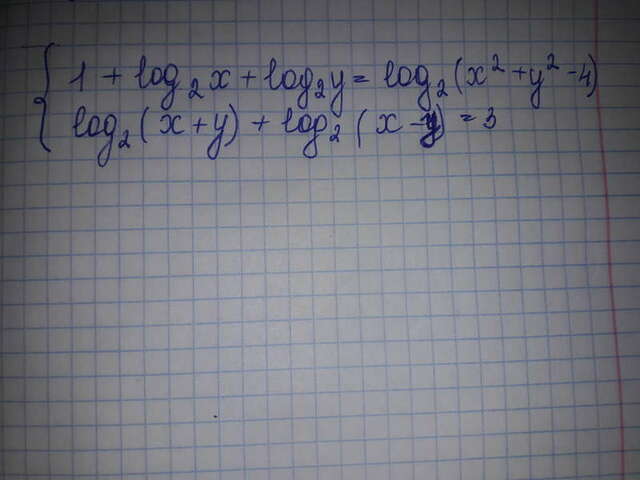 1 + log₂x + log₂y = log₂(x² + y² - 4)
log₂(x + y) + log₂(x - y) = 3